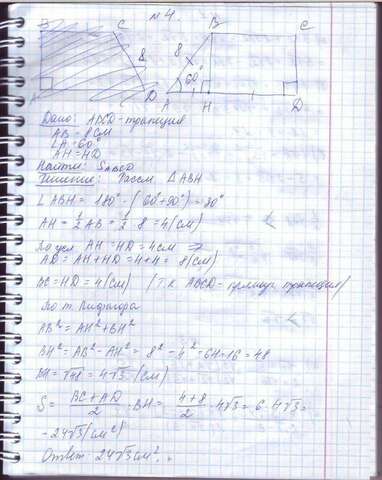 №4.
B C B C
8 8 60°
A D A H D
Дано: ABCD - трапеция
AB = 8 см
∠A = 60°
AH = HD
Найти: S ABCD
Решение: Рассм. △ABH
∠ABH = 180° - (60°+90°) = 30°
AH = 1/2 AB = 1/2 · 8 = 4 (см)
По усл. AH = HD = 4 см ⇒
AD = AH + HD = 4+4 = 8 (см)
BC = HD = 4 (см) (т.к. ABCD - прямоуг. трапеция)
По т. Пифагора
AB² = AH² + BH²
BH² = AB² - AH² = 8² - 4² = 64 - 16 = 48
BH = √48 = 4√3 (см)
S = BC + AD / 2 · BH = 4+8 / 2 · 4√3 = 6 · 4√3 =
= 24√3 (см²)
Ответ: 24√3 см².